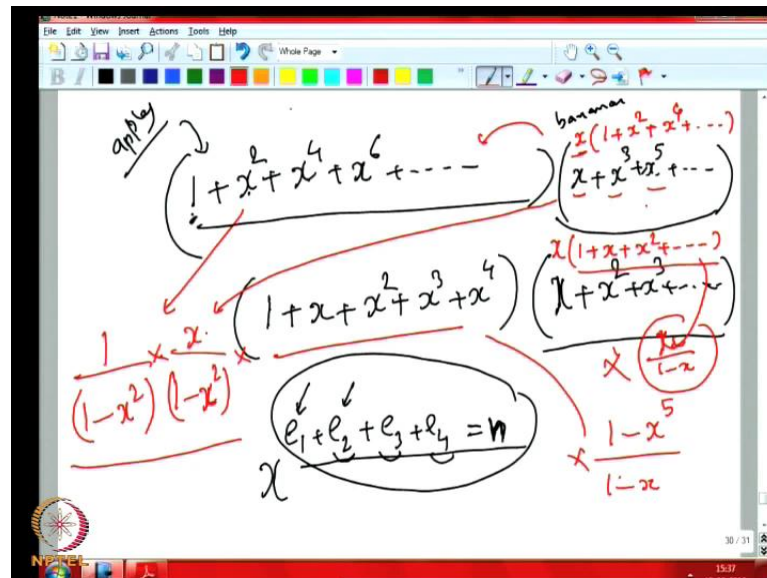 File Edit View Insert Actions Tools Help
Whole Page
B I
apples
bananas
x(1+x²+x⁴+----)
(1+x²+x⁴+x⁶+-----) (x+x³+x⁵+---)
x(1+x+x²+----)
(1+x+x²+x³+x⁴) (x+x²+x³+---)
1/(1-x²) × x/(1-x²) ×
× x/(1-x)
e₁+e₂+e₃+e₄=n
x
× (1-x⁵)/(1-x)
30 / 31
NPTEL
15:37